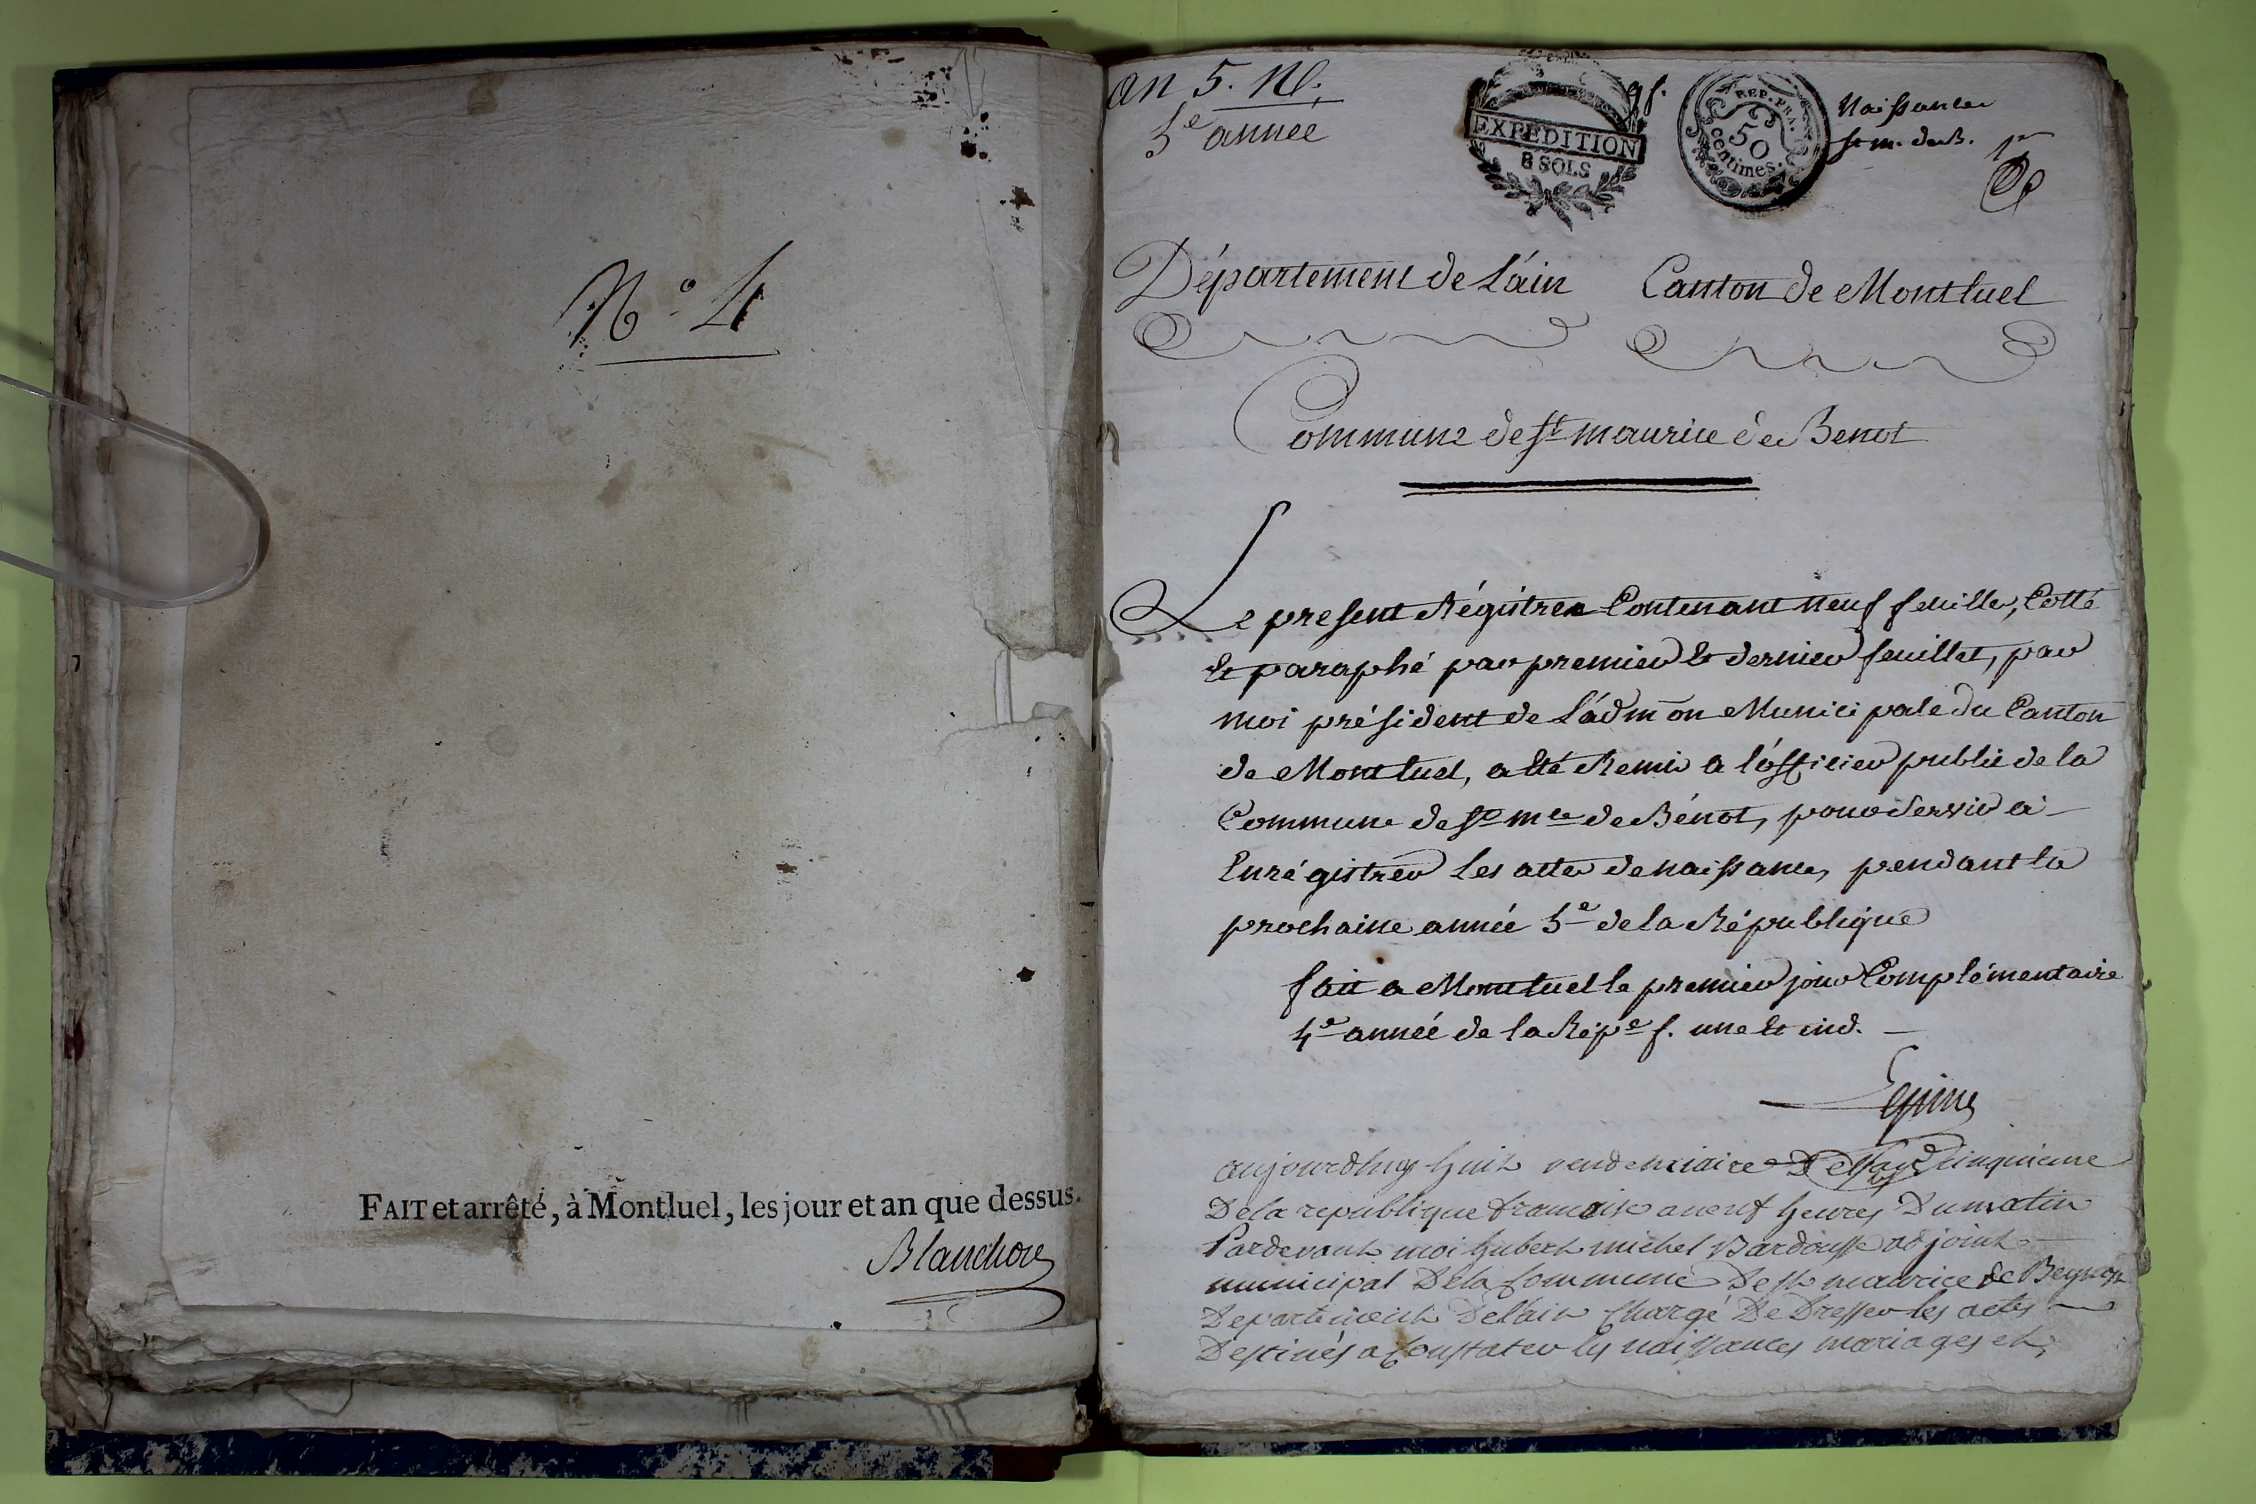 N.o 4
FAIT et arrêté, à Montluel, les jour et an que dessus.
Blanchon
an 5. N.
5e année
EXPEDITION
8 SOLS
REP. FRA.
50
centimes.
Naissances
st m. de B.
1er
Département de L'áin Canton de Montluel
Commune de st maurice de Benot
Le present Régistre Contenant neuf feuilles, Cotté
et paraphé par premier et dernier feuillet, par
moi président de L'ádmon Municipale du Canton
de Montluel, a été Remis a l'officier public de la
Commune de st mce de Bénot, pour servir à
Enrégistrer les actes de naissances, pendant la
prochaine année 5e de la République
fait a Montluel le premier jour Complémentaire
4e année de la Répe f. une et ind.
Lepine
aujourdhuy huit vendemiaire De Lan cinquieme
De la republique francaise a neuf heures Du matin
Pardevant moi hubert michel Bardousse adjoint
municipal De la Commune De st maurice de Beynost
Departement De lain Chargé De Dresser les actes
Destinés a Constater les naissances mariages et